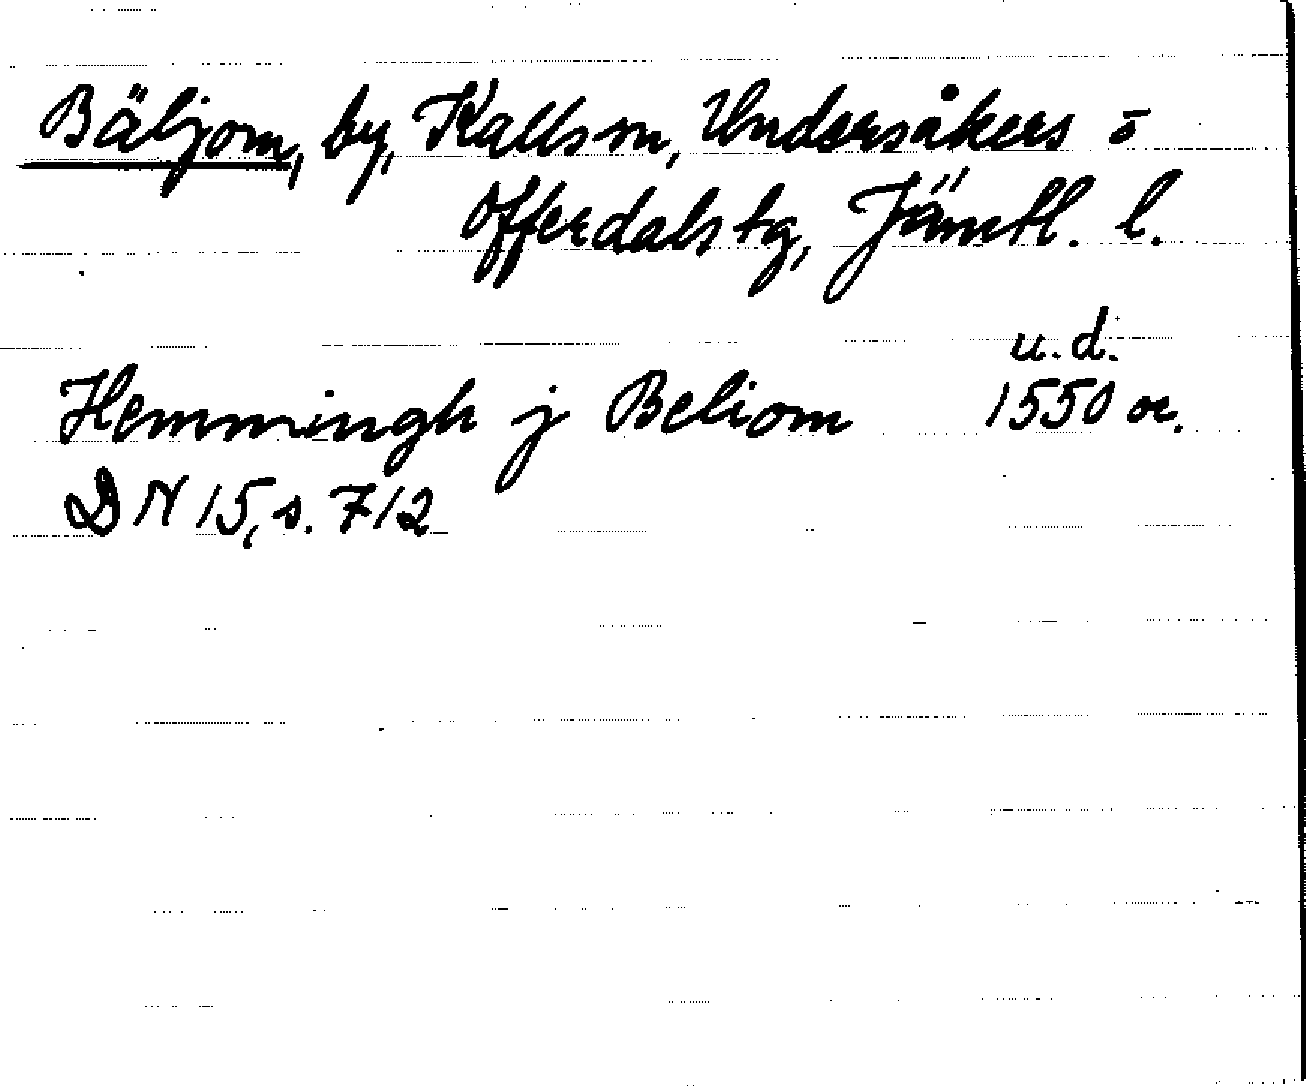 Bäljom, by, Kalls sn, Undersåkers o
Offerdals tg, Jämtl. l.
u.d.
Hemmingh j Beliom 1550 or.
DN 15, s. 712